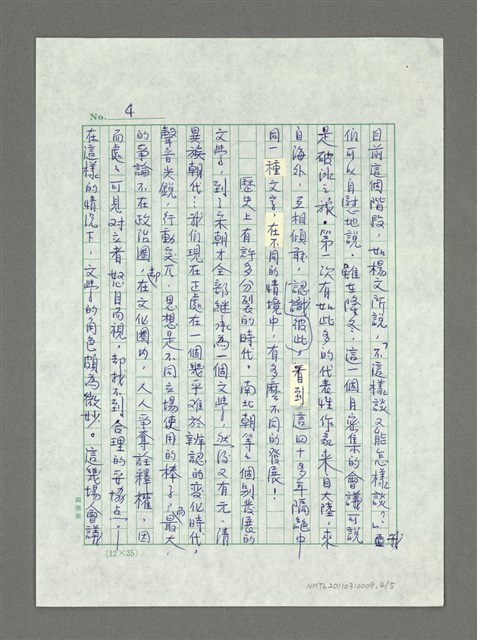 No. 4
目前這個階段，如楊文所說，「不這樣談又能怎樣談？」我
們可以自慰地說，雖在隆冬，這一個月密集的會議可說
是破冰之旅。第一次有如此多的代表性作家來自大陸，來
自海外，互相傾聽，認識彼此，看到這四十多年隔絕中
同一種文字，在不同的情境中，有多麼不同的發展！
歷史上有許多分裂的時代，南北朝等個別發展的
文學，到了宋朝才全部繼承為一個文學，然後又有元、清
異族朝代。我們現在正處在一個幾乎難於辨認的變化時代，
聲音尖銳，行動突兀，思想是不同立場使用的棒子，最大
的爭論不在政治圈，却在文化圈內，人人爭奪詮釋權，因
而處處可見對立者怒目而視，却找不到合理的妥協点——
在這樣的情況下，文學的角色頗為微妙。這幾場會議
(12×25)
NMTL20110310009.4/5